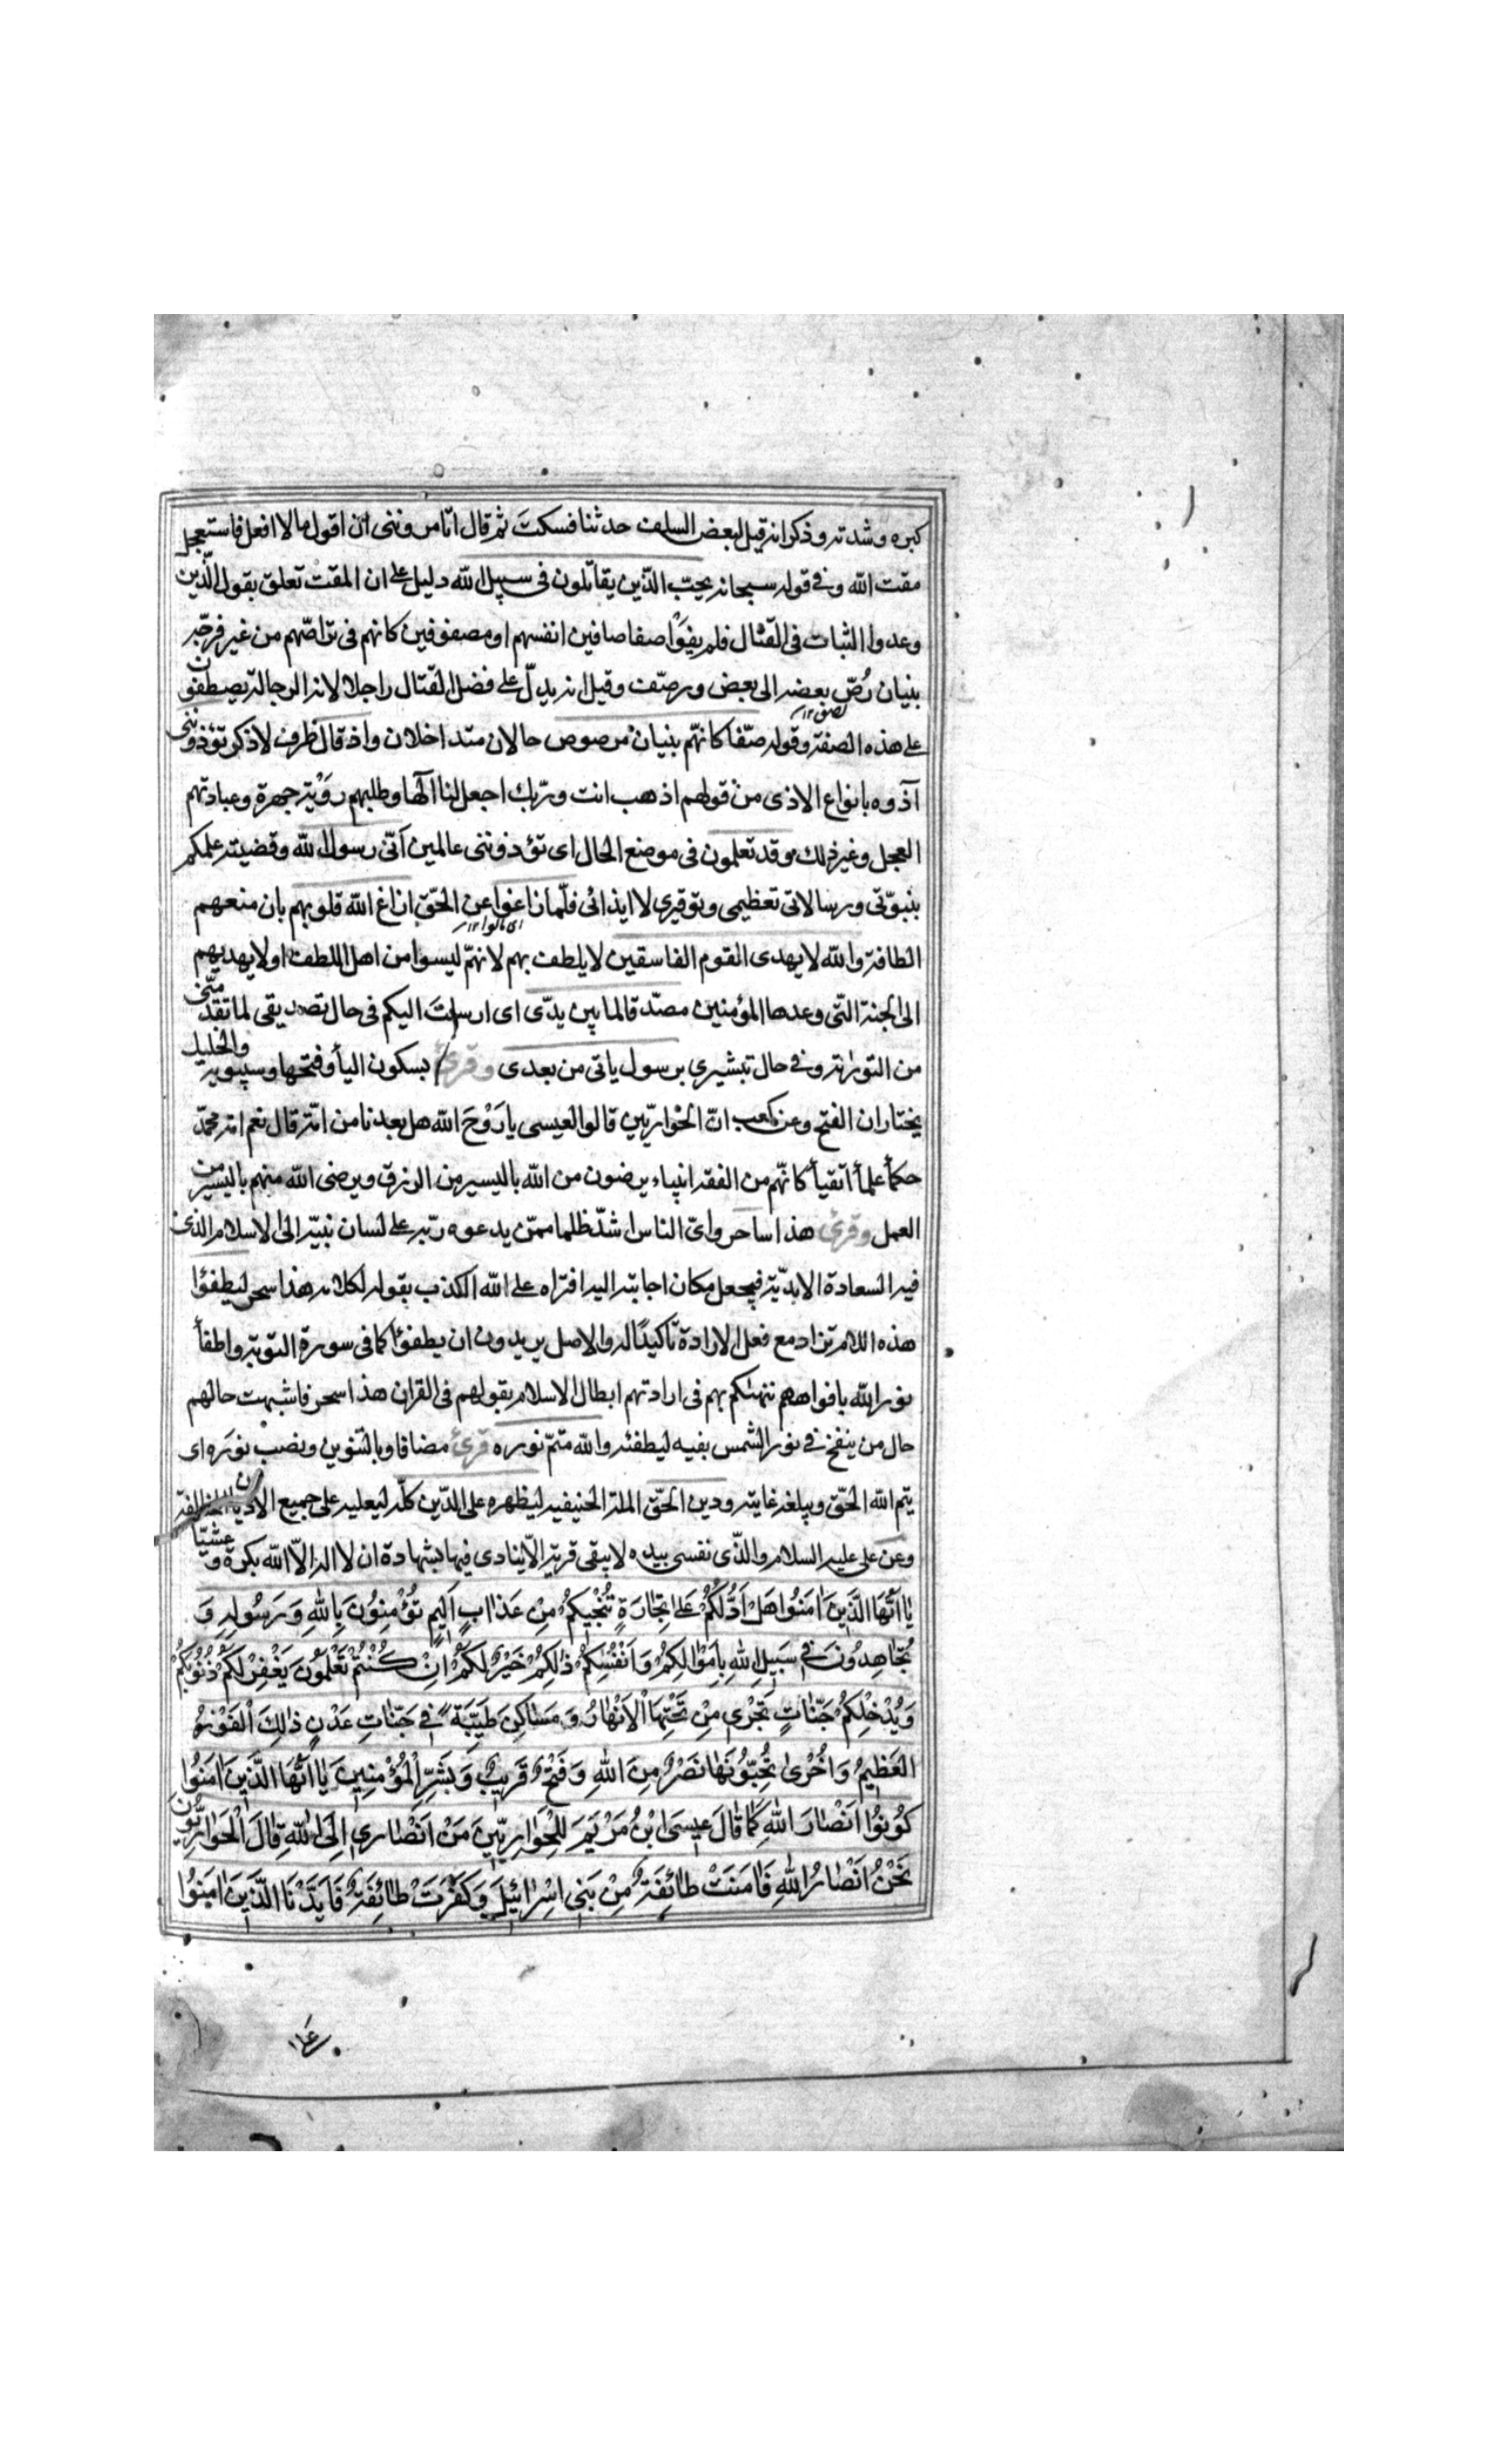 كبره وشدته وذكر انه قيل لبعض السلف حدثنا فسكت ثم قال اتامرونني ان اقول ما لا افعل فاستعجل
مقت الله وفي قوله سبحانه يحبّ الذّين يقاتلون في سبيل الله دليل على ان المقت تعلق بقول الّذين
وعدوا الثبات في القتال فلم يفوا صفا صافين انفسهم او مصفوفين كانهم في تراصّهم من غير فرجة
بنيان رُصّ بعضه الى بعض ورصّف وقيل انه يدلّ على فضل القتال راجلا لان الرجالة يصطفون
على هذه الصفة وقوله صفّا كانهّم بنيان مرصوص حالان متداخلان واذ قال ظرف لاذكر تؤذونني
آذوه بانواع الاذى من قولهم اذهب انت وربّك اجعل لنا آلهًا وطلبهم رؤية جهرة وعبادتهم
العجل وغير ذلك وقد تعلمون في موضع الحال اى تؤذونني عالمين انّي رسول الله وقضية علمكم
بنبوّتي ورسالاتي تعظيمى وتوقيرى لا ايذائى فلّما زاغوا عن الحقّ ازاغ الله قلوبهم بان منعهم
الطافه والله لا يهدى القوم الفاسقين لا يلطف بهم لانهّم ليسوا من اهل اللطف او لا يهديهم
الى الجنة التّي وعدها المؤمنين مصدّقا لما بين يدّى اى ارسلت اليكم في حال تصديقى لما تقدّمني
من التورٰية وفي حال تبشيرى برسول ياتى من بعدى وقرئ بسكون اليأ وفتحها وسيبويه والخليل
يختاران الفتح وعن كعب انّ الحواريّين قالوا لعيسى يا رَوْحَ الله هل بعدنا من امّة قال نعم امة محمّد
حكمأ علمأ اتقيأ كانهّم من الفقه انبياء يرضون من الله باليسير من الرزق ويرضى الله منهم باليسير من
العمل وقرئ هذا ساحر واىّ الناس اشدّ ظلما ممّن يدعوه ربّه على لسان نبيّه الى الاسلام الذى
فيه السعادة الابديّة فيجعل مكان اجابته اليه افتراه على الله الكذب بقوله لكلامه هذا سحر ليطفؤا
هذه اللام تزاد مع فعل الارادة تاكيدًا له والاصل يريدون ان يطفؤا كما في سورة التوبة واطفأ
نور الله بافواههم تهكم بهم في ارادتهم ابطال الاسلام بقولهم في القران هذا سحر فاشبهت حالهم
حال من ينفخ في نور الشمس بفيه ليطفئه والله متمّ نوره قرئ مضافا وبالتنوين ونصب نوره اى
يتم الله الحقّ ويبلغه غايته ودين الحقّ الملة الحنيفيه ليظهره على الدّين كلّه ليعليه على جميع الاديان المخالفة
وعن على عليه السلام والذّى نفسى بيده لا يبقى قرية الّا ينادى فيها بشهادة ان لا اله الّا الله بكرة وعشيّا
يٰا اَيُّهَا الَّذِينَ اٰمَنُوا هَلْ اَدُلُّكُمْ عَلىٰ تِجٰارَةٍ تُنْجِيكُمْ مِنْ عَذٰابٍ اَلِيمٍ تُؤْمِنُونَ بِاللّٰهِ وَرَسُولِهِ وَ
تُجٰاهِدُونَ في سَبِيلِ اللّٰهِ بِاَمْوٰالِكُمْ وَاَنْفُسِكُمْ ذٰلِكُمْ خَيْرٌ لَكُمْ اِنْ كُنْتُمْ تَعْلَمُونَ يَغْفِرْ لَكُمْ ذُنُوبَكُمْ
وَيُدْخِلْكُمْ جَنّٰاتٍ تَجْرى مِنْ تَحْتِهَا الْاَنْهٰارُ وَمَسٰاكِنَ طَيِّبَةً في جَنّٰاتِ عَدْنٍ ذٰلِكَ الْفَوْزُ
الْعَظِيمُ وَاُخْرىٰ تُحِبُّونَهٰا نَصْرٌ مِنَ اللّٰهِ وَفَتْحٌ قَرِيبٌ وَبَشِّرِ الْمُؤْمِنِينَ يٰا اَيُّهَا الَّذِينَ اٰمَنُوا
كُونُوا اَنْصٰارَ اللّٰهِ كَمٰا قٰالَ عِيسَى ابْنُ مَرْيَمَ لِلْحَوٰارِيّينَ مَنْ اَنْصٰارى اِلَى اللّٰهِ قٰالَ الْحَوٰارِيُّونَ
نَحْنُ اَنْصٰارُ اللّٰهِ فَاٰمَنَتْ طٰائِفَةٌ مِنْ بَنِى اِسْرٰائِيلَ وَكَفَرَتْ طٰائِفَةٌ فَاَيَّدْنَا الَّذِينَ اٰمَنُوا